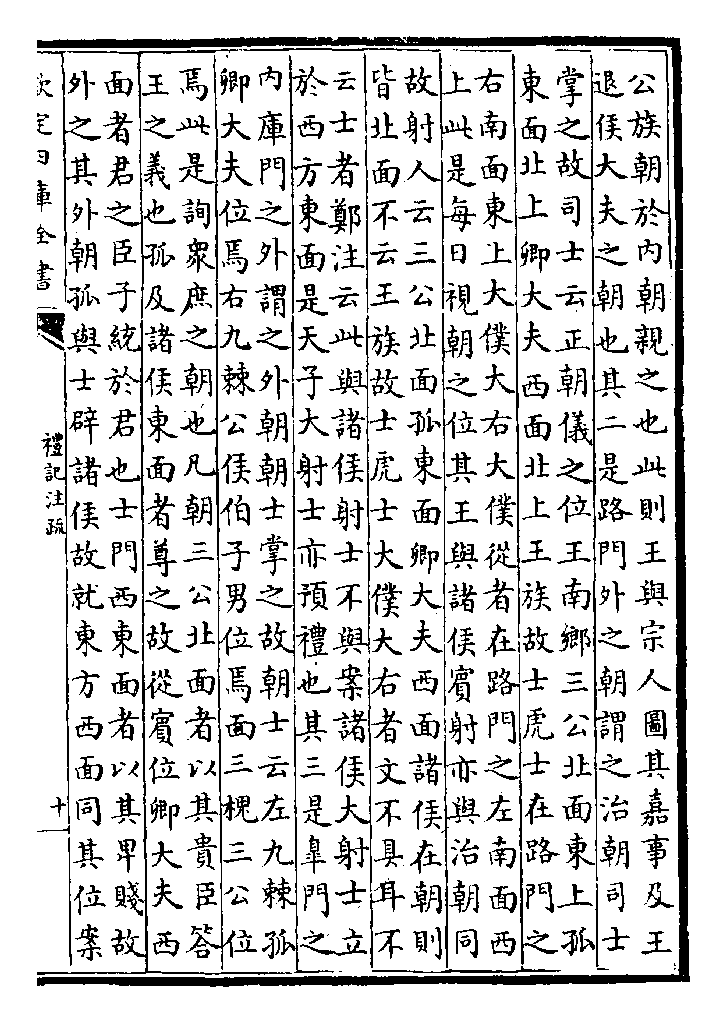 公族朝於内朝親之也此則王與宗人圖其嘉事及王
退俟大夫之朝也其二是路門外之朝謂之治朝司士
掌之故司士云正朝儀之位王南鄉三公北面東上孤
東面北上卿大夫西面北上王族故士虎士在路門之
右南面東上大僕大右大僕從者在路門之左南面西
上此是每日視朝之位其王與諸侯賓射亦與治朝同
故射人云三公北面孤東面卿大夫西面諸侯在朝則
皆北面不云王族故士虎士大僕大右者文不具耳不
云士者鄭注云此與諸侯射士不與案諸侯大射士立
於西方東面是天子大射士亦預禮也其三是臯門之
内庫門之外謂之外朝朝士掌之故朝士云左九棘孤
卿大夫位焉右九棘公侯伯子男位焉面三槐三公位
焉此是詢衆庶之朝也凡朝三公北面者以其貴臣答
王之義也孤及諸侯東面者尊之故從賓位卿大夫西
面者君之臣子統於君也士門西東面者以其卑賤故
外之其外朝孤與士辟諸侯故就東方西面同其位案
欽定四庫全書
禮記注疏
十